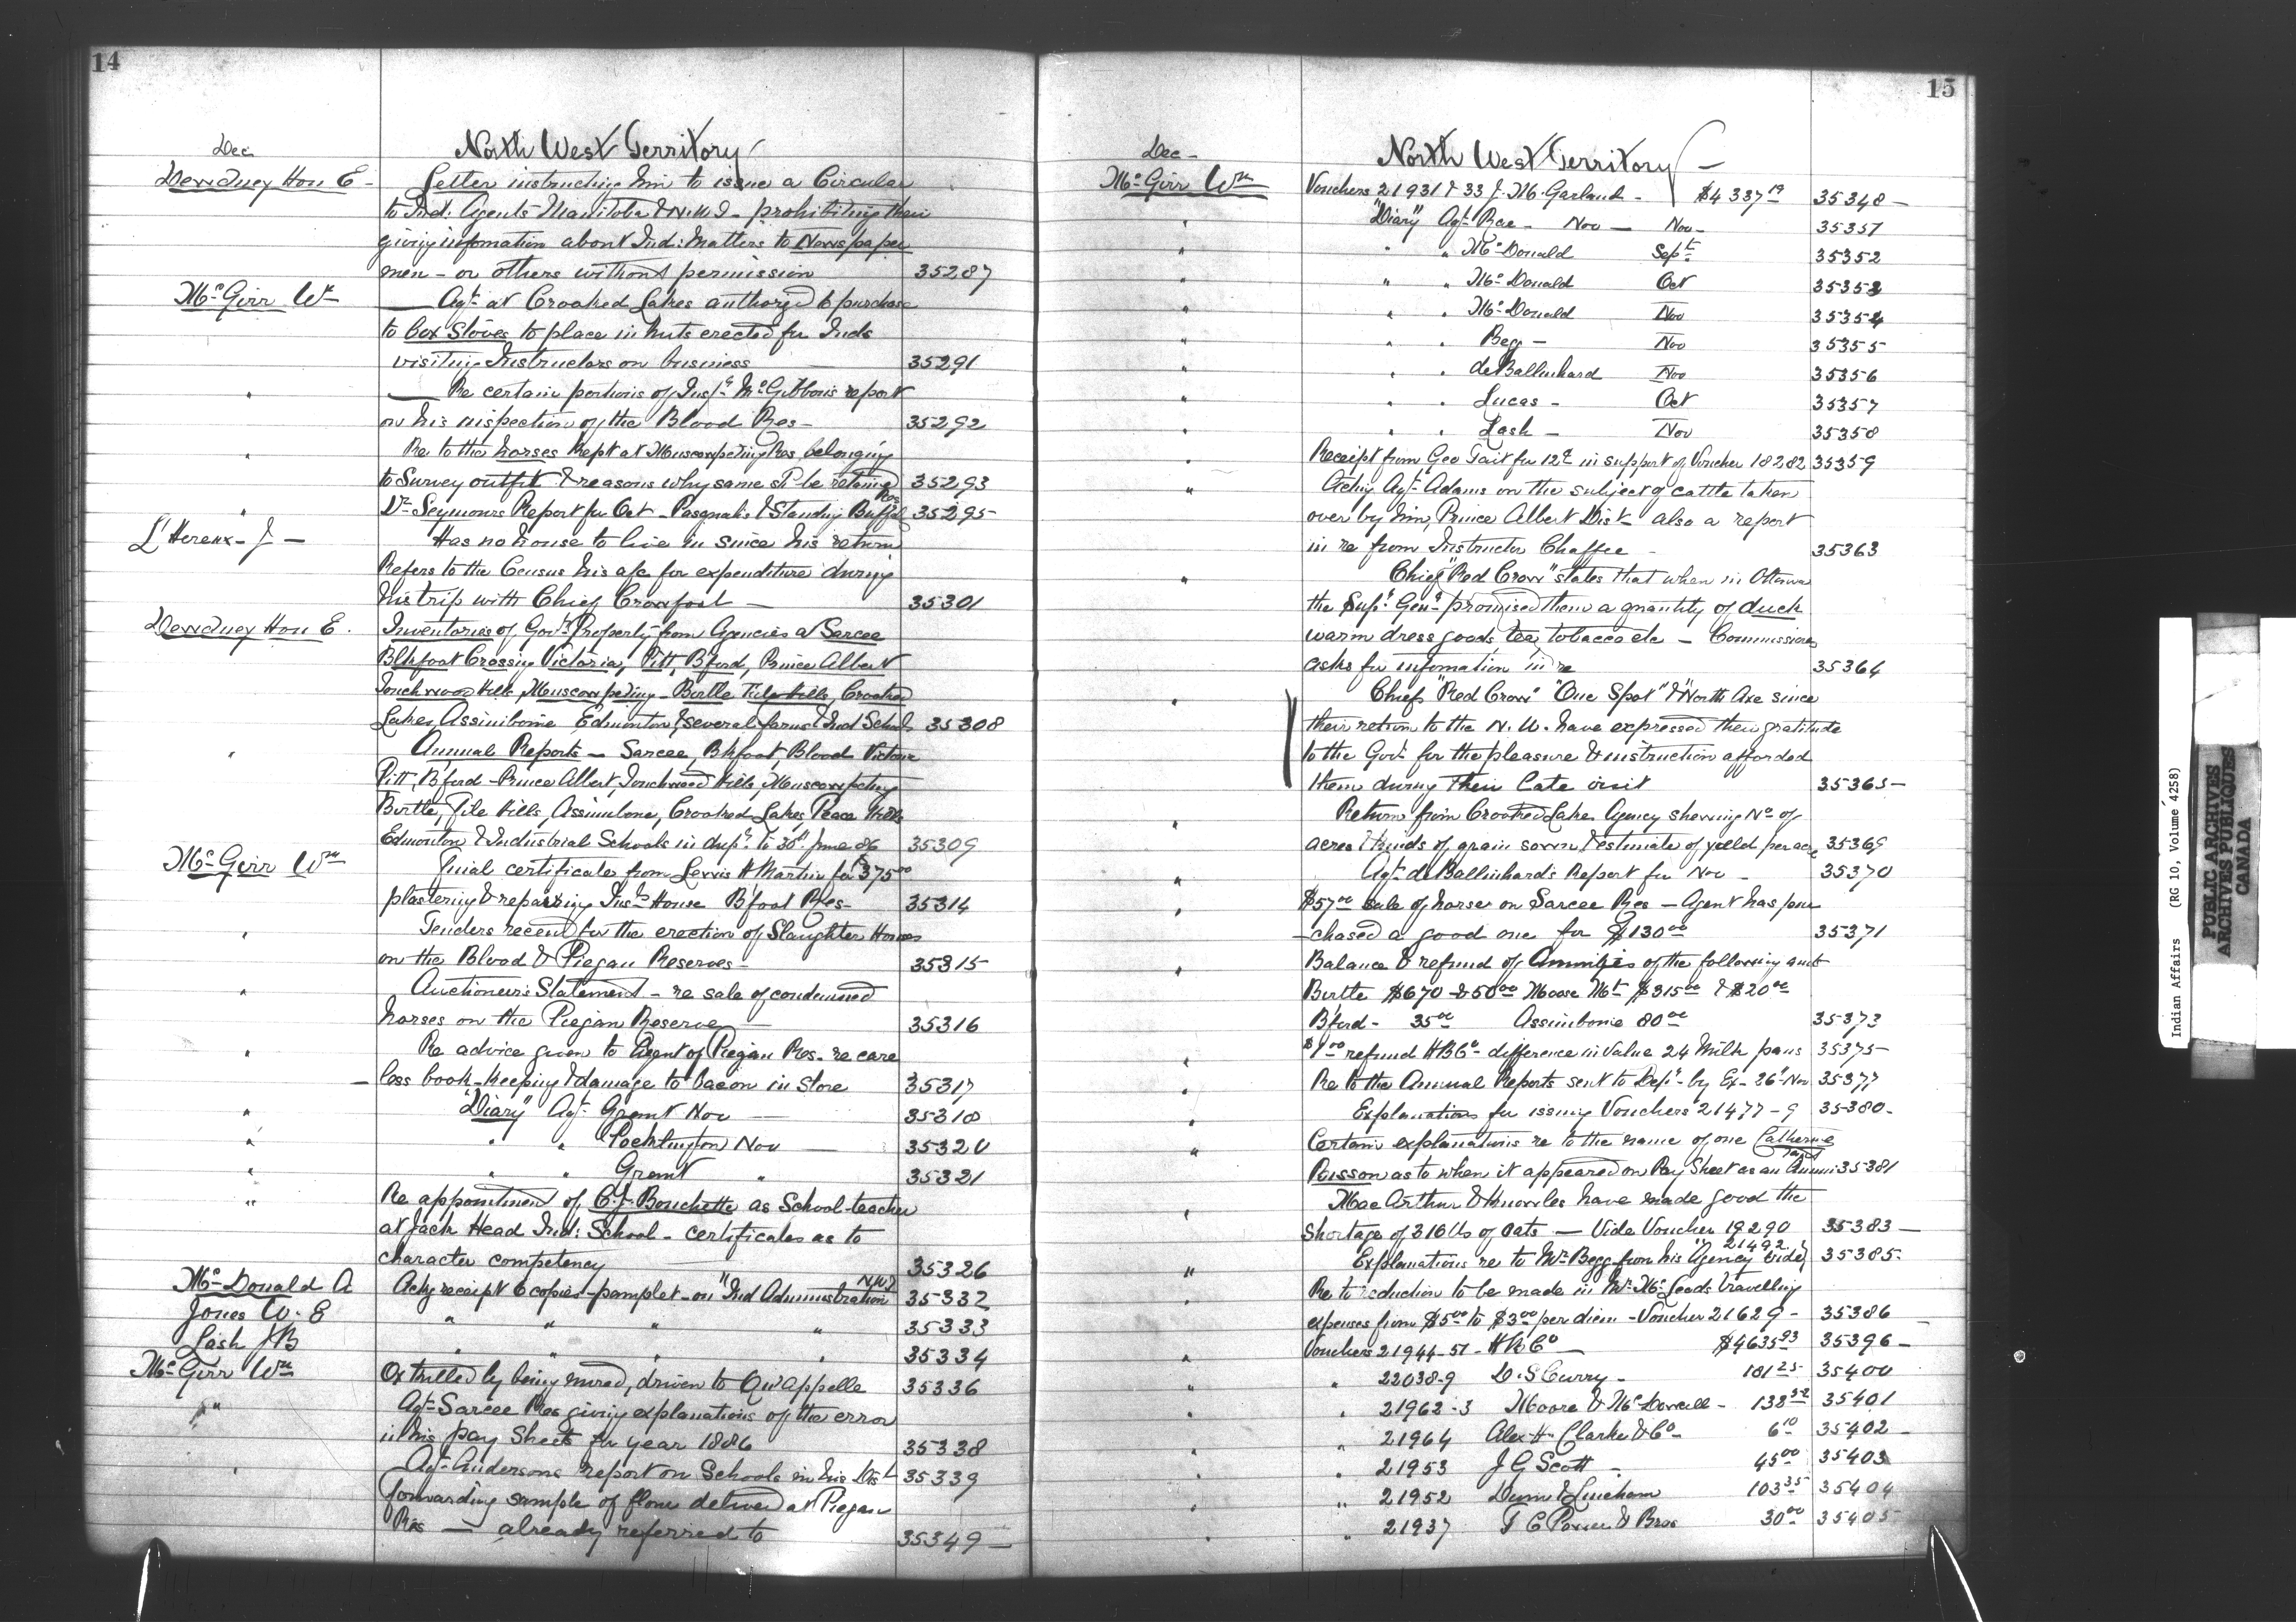 14
Dec North West Territory
Dewdney Hon E - Letter instructing him to issue a Circular
to Ind. Agents Manitoba & N.W.T. prohibiting their
giving infomation about Ind: Matters to Newspaper
men - or others without permission 35287
McGirr Wm — Agt. at Crooked Lakes authorized to purchase
to box Stoves to place in huts erected for Inds
visiting Instructors on business 35291
" — Re certain portions of Insp. McGibbon's report
on his inspection of the Blood Res - 35292
" Re to the horses kept at Muscowpetung Res, belonging
to Survey outfit & reasons why same sh be retained 35293
" Dr Seymours Report for Oct - Pasquahs & Standing Buffalo Res 35295
L'Hereux - J - Has no house to live in since his return
Refers to the Census his a/c for expenditure during
his trip with Chief Crowfoot — 35301
Dewdney Hon E. Inventories of Govt. Property from Agencies at Sarcee
Blkfoot Crossing Victoria, Pitt, B'ford, Prince Albert
Touchwood Hills, Muscowpetung - Birtle File Hills, Crooked
Lakes, Assiniboine Edmonton & several farms & Ind Schools 35308
" Annual Reports - Sarcee, Bkfoot, Blood Victoria
Pitt, B'ford - Prince Albert, Touchwood Hills, Muscowpetung
Birtle, File Hills, Assinibone, Crooked Lakes, Peace Hills
Edmonton & Industrial Schools in dup. to 30th June 86 35309
McGirr Wm Final certificates from Lewis H Martin for $375.00
plastering & repairing Ins House B'foot Res - 35314
" Tenders recevd for the erection of Slaughter Houses
on the Blood & Piegan Reserves - 35315
" Auctioneer's Statement - re sale of condemned
horses on the Piegan Reserve — 35316
" Re advice given to Agent of Piegan Res. re care
loss book-keeping & damage to bacon in store 35317
" "Diary" Agt. Grant Nov — 35318
" " " Pocklington Nov — 35320
" " " Grant " 35321
" Re appointment of C.J. Bouchette as School-teacher
at Jack Head Ind: School - certificates as to
character competency 35326
McDonald A Ackg receipt 6 copies - pamplet - on "Ind Administration N.W.T 35332
Jones W. E " " " " 35333
Lash JB " " " " 35334
McGirr Wm Ox killed by being mired, driven to Qu'Appelle 35336
" Agt. Sarcee Res giving explanations of the error
in his pay Sheets for year 1886 35338
" Agt. Andersons report on Schools in his Dist 35339
forwarding sample of flour deliverd at Piegan
Res — already referred to 35349 —
15
Dec - North West Territory —
McGirr Wm Vouchers 21931 & 33 J. M. Garland - $4337.19 35348 —
" "Diary" Agt. Rae - Nov — Nov - 35351
" " " McDonald Sept 35352
" " " McDonald Oct 35353
" " " McDonald Nov 35354
" " " Beg - Nov 35355
" " " deBallinhard Nov 35356
" " " Lucas - Oct 35357
" " " Lash - Nov 35358
" Receipt from Geo Tait for 12c in support of Voucher 18282 35359
" Acting Agt. Adams on the subject of cattle taken
over by him, Prince Albert Dist - also a report
in re from Instructor Chaffee - 35363
" Chief "Red Crow" states that when in Ottawa
the Supt. Genl. promised them a quantity of duck
warm dress goods, tea, tobacco etc - Commissioner
asks for infomation in re 35364
" Chiefs "Red Crow" "One Spot" & "North Axe since
their return to the N. W. have expressed their gratitude
to the Govt. for the pleasure & instruction afforded
them during their late visit 35365 —
" Return from Crooked Lakes Agency shewing No of
acres & kinds of grain sown & estimate of yield per acre 35369
" Agt. deBallinhard's Report for Nov - 35370
" $57.00 sale of horses on Sarcee Res - Agent has pur
-chased a good one for $130.00 35371
" Balance & refund of Annuities of the following amts
Birtle $670 & 50.00 Moose Mt $315.00 & $20.00
B'ford - 35.00 Assinibonie 80.00 35373
" $9.00 refund HBCo - difference in value 24 Milk pans 35375 -
" Re to the Annual Reports sent to Dept. by Ex - 26th Nov 35377
" Explanations for issuing Vouchers 21477 - 9 35380 -
" Certain explanations re to the name of one Catherine
Poisson as to when it appeared on Pay Sheet as an Annuitant 35381
" Mac Arthur & Knowles have made good the
shortage of 316 lbs of oats - Vide Voucher 19290 35383 —
" Explanations re to Mr. Begg from his Agency vide 21492 35385 -
" Re to reduction to be made in Mr. McLeods travelling
expenses from $5.00 to $3.00 per diem - Voucher 21629 - 35386
" Vouchers 21944-51 - HBCo — $4635.93 35396 -
" " 22038-9 D. S Curry - 181.25 35400
" " 21962-3 Moore & McDowell - 138.52 35401
" " 21964 Alex H. Clarke & Co - 6.10 35402 -
" " 21953 J G Scott - 45.00 35403
" " 21952 Dunn & Lineham 103.35 35404
" " 21937 T C Power & Bros 30.00 35405
Indian Affairs (RG 10, Volume 4258)
PUBLIC ARCHIVES
ARCHIVES PUBLIQUES
CANADA